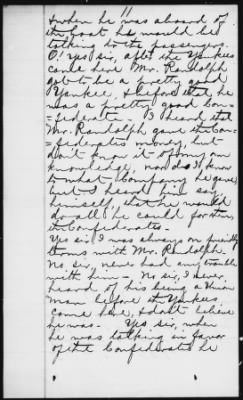 11
& when he was aboard of
the boat he would be
talking to the passengers.
O! yes sir, after the Yankees
came here Mr. Randolph
got to be a pretty good
Yankee, & before that he
was a pretty good Con-
=federate. I heard that
Mr. Randolph gave the Con-
=federates money, but
don't know it of my own
knowledge, nor do I know
what he gave,
but I heard him say
himself, that he would
do all he could for them
the Confederates.
Yes sir I was always on friendly
terms with Mr. Randolph.
No sir, never had any trouble
with him. No sir, I never
heard of his being a Union
man before the Yankees
came here, & don't believe
he was. Yes sir, when
he was talking in favor
of the Confederates he